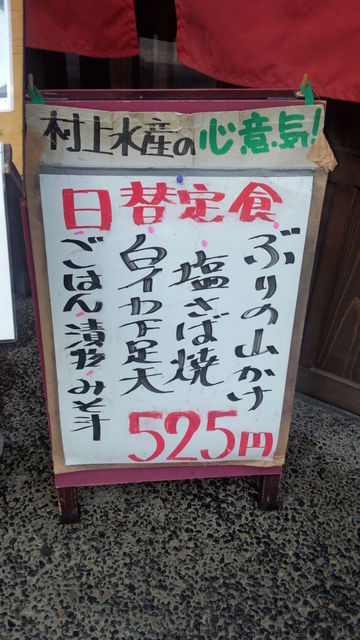 村上水産の心意気!
日替定食
ぶりの山かけ
塩さば焼
白イカ下足天
ごはん・漬物・みそ汁
525円